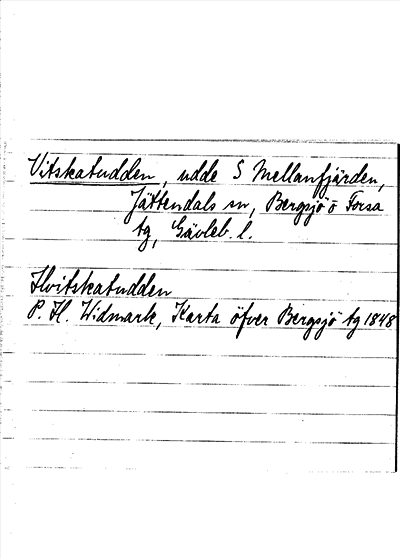 Vitskatudden, udde S Mellanfjärden,
Jättendals sn, Bergsjö o Forsa
tg, Gävleb. l.
Hvitskatudden
P. H. Widmark, Karta öfver Bergsjö tg 1848